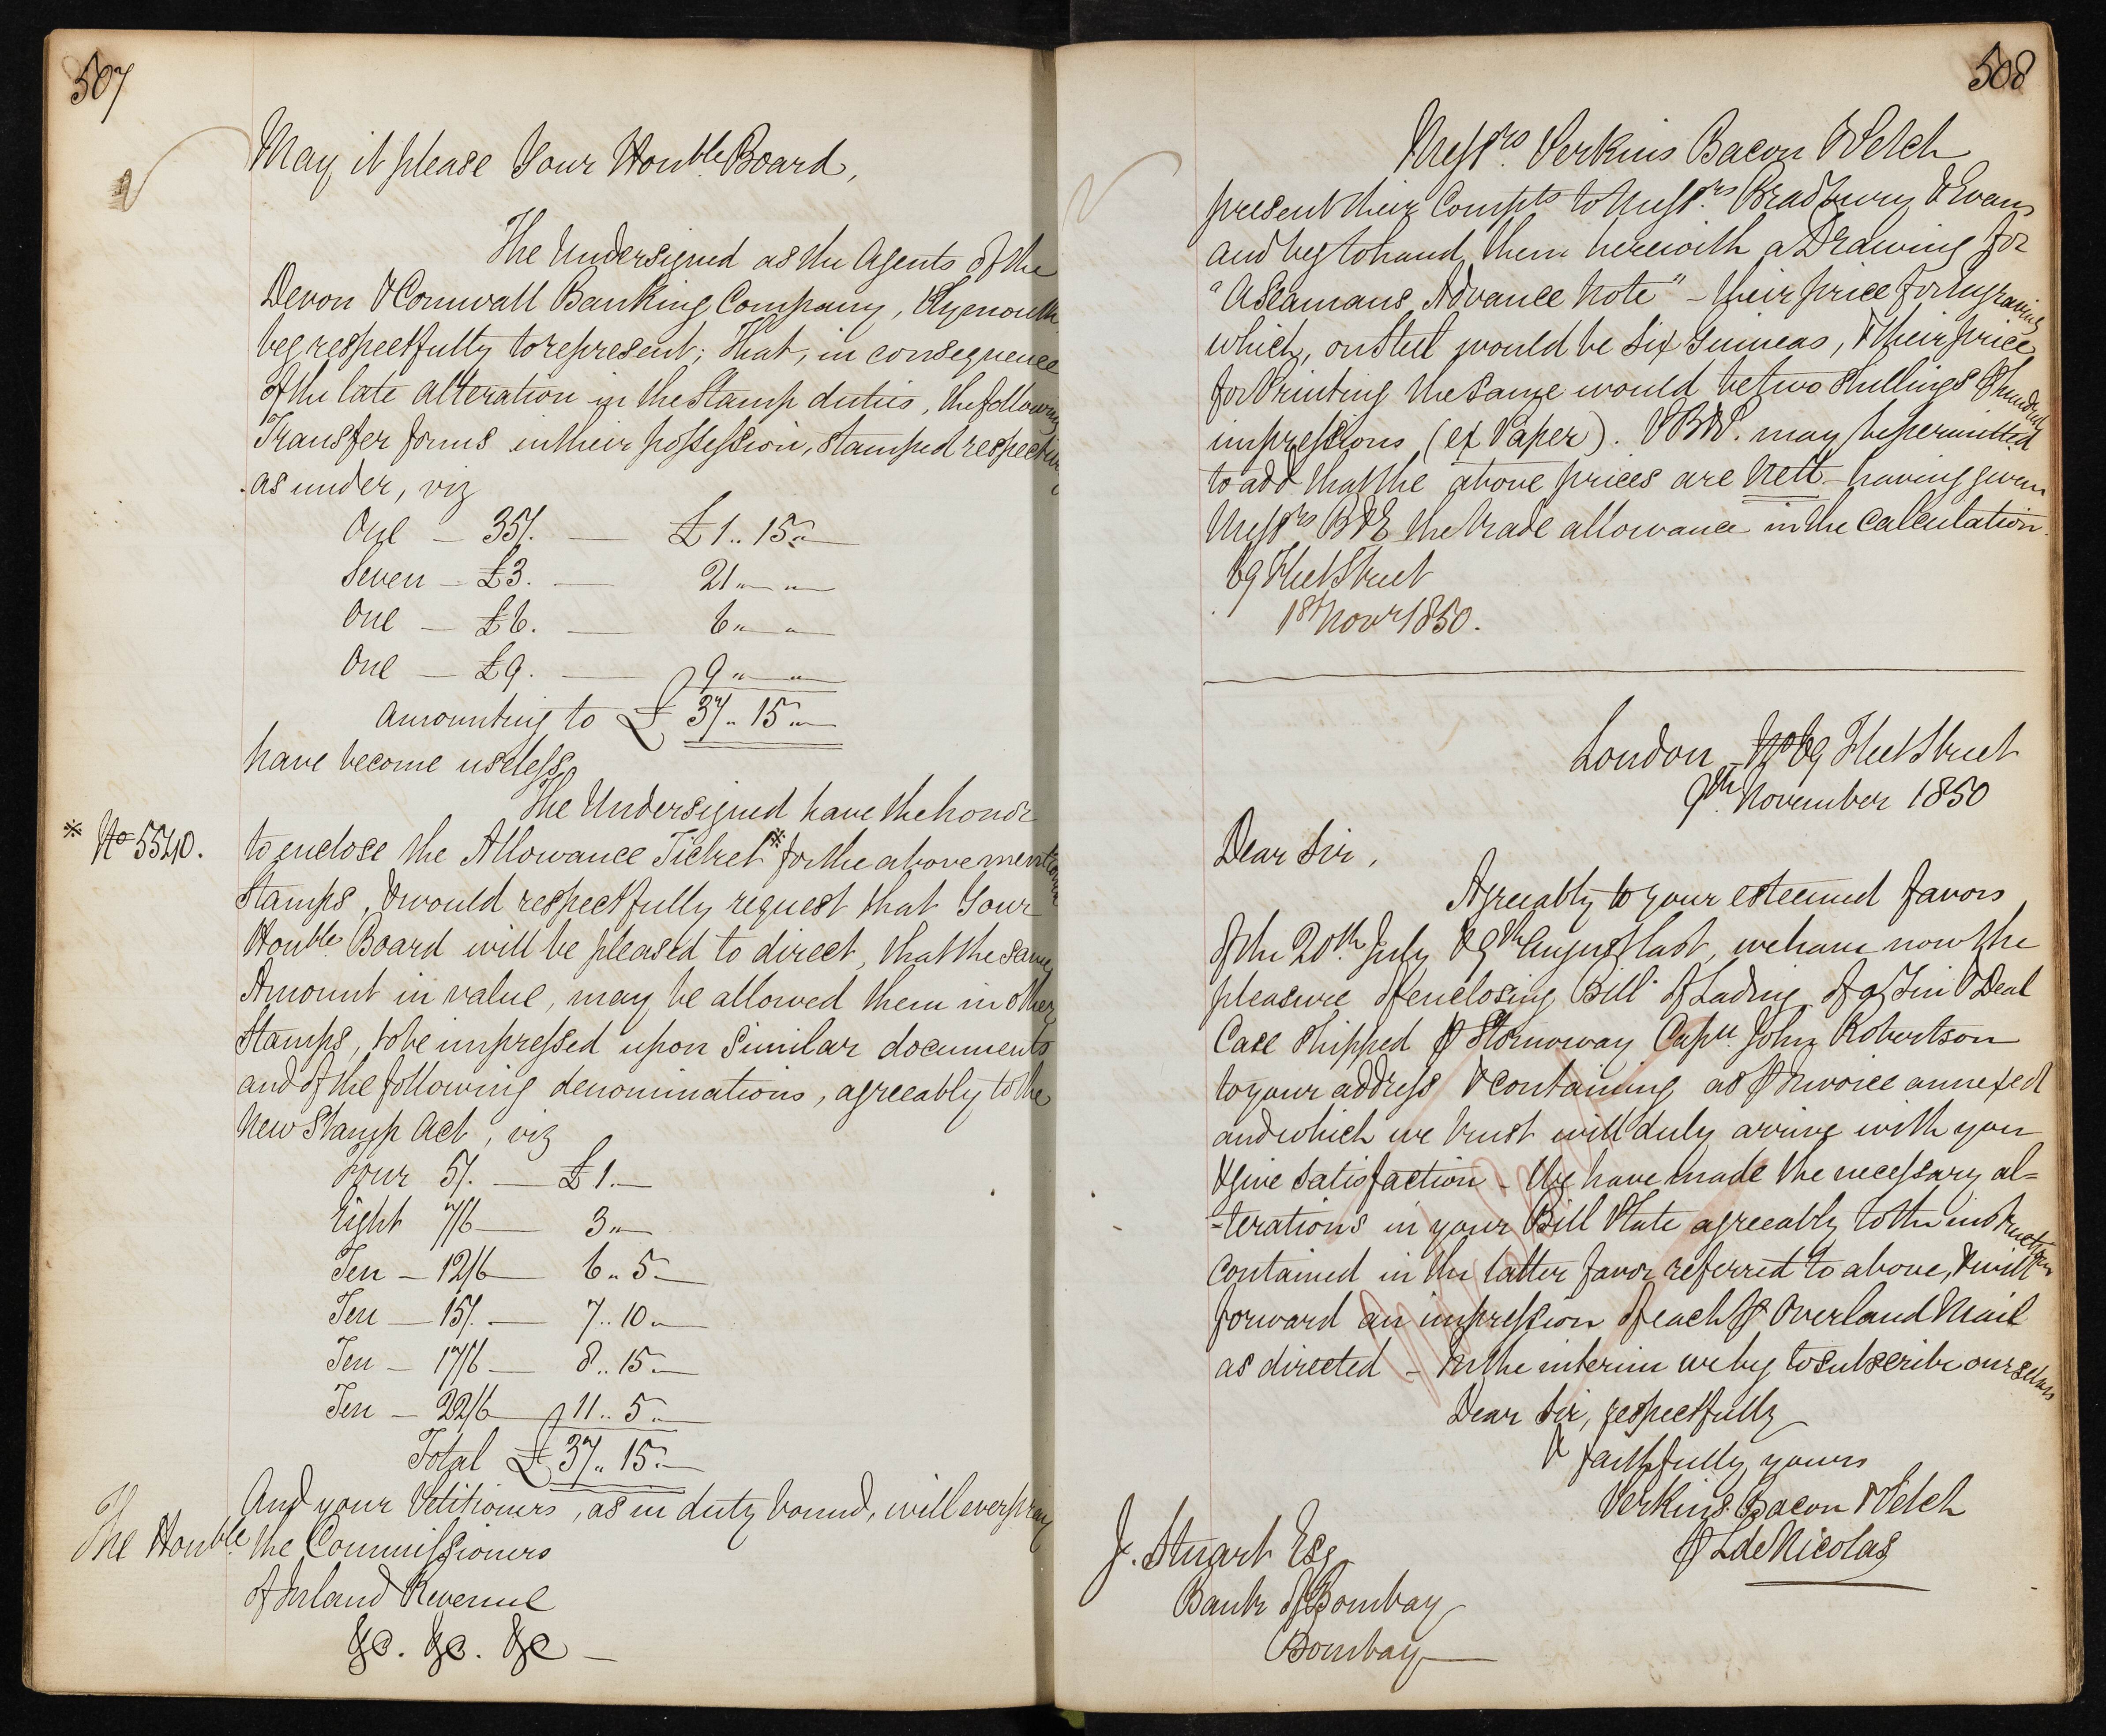 507
May it please Your Honble Board,
The Undersigned as the Agents of the
Devon & Cornwall Banking Company, Plymouth
beg respectfully to represent; That, in consequence
of the late alteration in the Stamp duties, the following
Transfer forms in their possession, stamped respectively
as under, viz
One – 35/. — £1.. 15 "—
Seven – £3. — 21 "— "—
One – £6. — 6 "— "—
One – £9. — 9 "— "—
Amounting to £ 37 .. 15 "—
have become useless.
The Undersigned have the honor
※ No 5540.
to enclose the Allowance Ticket ※ for the abovementioned
Stamps, & would respectfully request that Your
Honble Board will be pleased to direct, that the same
Amount in value, may be allowed them in other
Stamps, to be impressed upon similar documents
and of the following denominations, agreeably to the
New Stamp Act, viz
Four 5/. — £1. —
Eight 7/6 — 3 "—
Ten – 12/6 — 6 .. 5 —
Ten – 15/. — 7 .. 10 "—
Ten – 17/6 — 8 .. 15 —
Ten – 22/6 — 11 .. 5 "—
Total £ 37 .. 15 —
And your Petitioners, as in duty bound, will ever pray
The Honble the Commissioners
of Inland Revenue
&c. &c. &c —
508
Messrs. Perkins Bacon & Petch
present their Compts to Messrs. Bradbury & Evans
and beg to hand them herewith a Drawing for
"A Seamans Advance Note" – their price for Engraving
which, on Steel would be six Guineas, & their price
for Printing the same would be two Shillings ⅌ hundred
impressions (ex Paper). PB&P. may be permitted
to add that the above prices are Nett – having given
Messrs B&E the trade allowance in the Calculation.
69 Fleet Street
1st Novr 1850.
London – No 69 Fleet Street
9th November 1850
Dear Sir,
Agreeably to your esteemed favors
of the 20th July & 9th August last, we have now the
pleasure of enclosing Bill of Lading of a Tin & Deal
Case shipped ⅌ Stornoway Captn John Robertson
to your address & containing as ⅌ Invoice annexed
and which we trust will duly arrive with you
& give satisfaction – We have made the necessary al=
=terations in your Bill Plate agreeably to the instructions
contained in the latter favor referred to above, & will
forward an impression of each ⅌ Overland Mail
as directed – In the interim we beg to subscribe ourselves
Dear Sir, respectfully
& faithfully yours
Perkins Bacon & Petch
⅌ L de Nicolas
J. Stuart Esq
Bank of Bombay
Bombay —